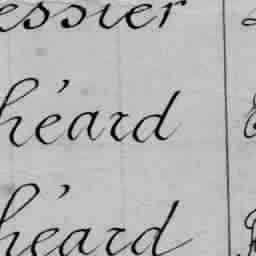 essier
héard
héard